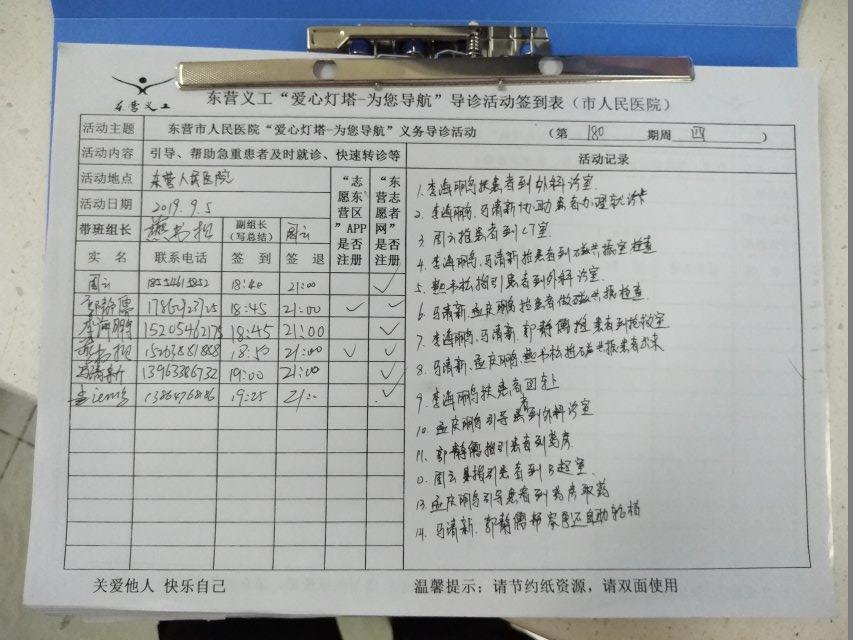 东营义工
东营义工“爱心灯塔-为您导航”导诊活动签到表（市人民医院）
活动主题 东营市人民医院“爱心灯塔-为您导航”义务导诊活动 （第 180 期周 四 ）
活动内容 引导、帮助急重患者及时就诊、快速转诊等
“志愿东营区”APP是否注册
“东营志愿者网”是否注册
活动记录
活动地点 东营人民医院
活动日期 2019.9.5
带班组长 燕书松 副组长（写总结） 周云
实名 联系电话 签到 签退
周云 18:40 21:00 ✓
郭静儒 18:45 21:00 ✓ ✓
李海鹏 15205462175 18:45 21:00 ✓
燕书松 15263881888 18:50 21:00 ✓ ✓
马清新 13963386732 19:00 21:00 ✓
19:25 ✓
1. 李海鹏扶患者到外科诊室.
2. 李海鹏、马清新协助患者办理就诊卡
3. 周云推患者到CT室.
4. 李海鹏、马清新推患者到磁共振室检查
5. 燕书松指引患者到外科诊室.
6. 马清新.孟庆鹏推患者做磁共振检查.
7. 李海鹏、马清新、郭静儒推患者到抢救室
8. 马清新、孟庆鹏、燕书松推磁共振患者出来
9. 李海鹏扶患者回车上
10. 孟庆鹏引导患者到外科诊室
11. 郭静儒指引患者到药房.
周云 指引患者到B超室.
13. 孟庆鹏引导患者到药房取药
14. 马清新.郭静儒 还自动轮椅
关爱他人 快乐自己
温馨提示：请节约纸资源，请双面使用